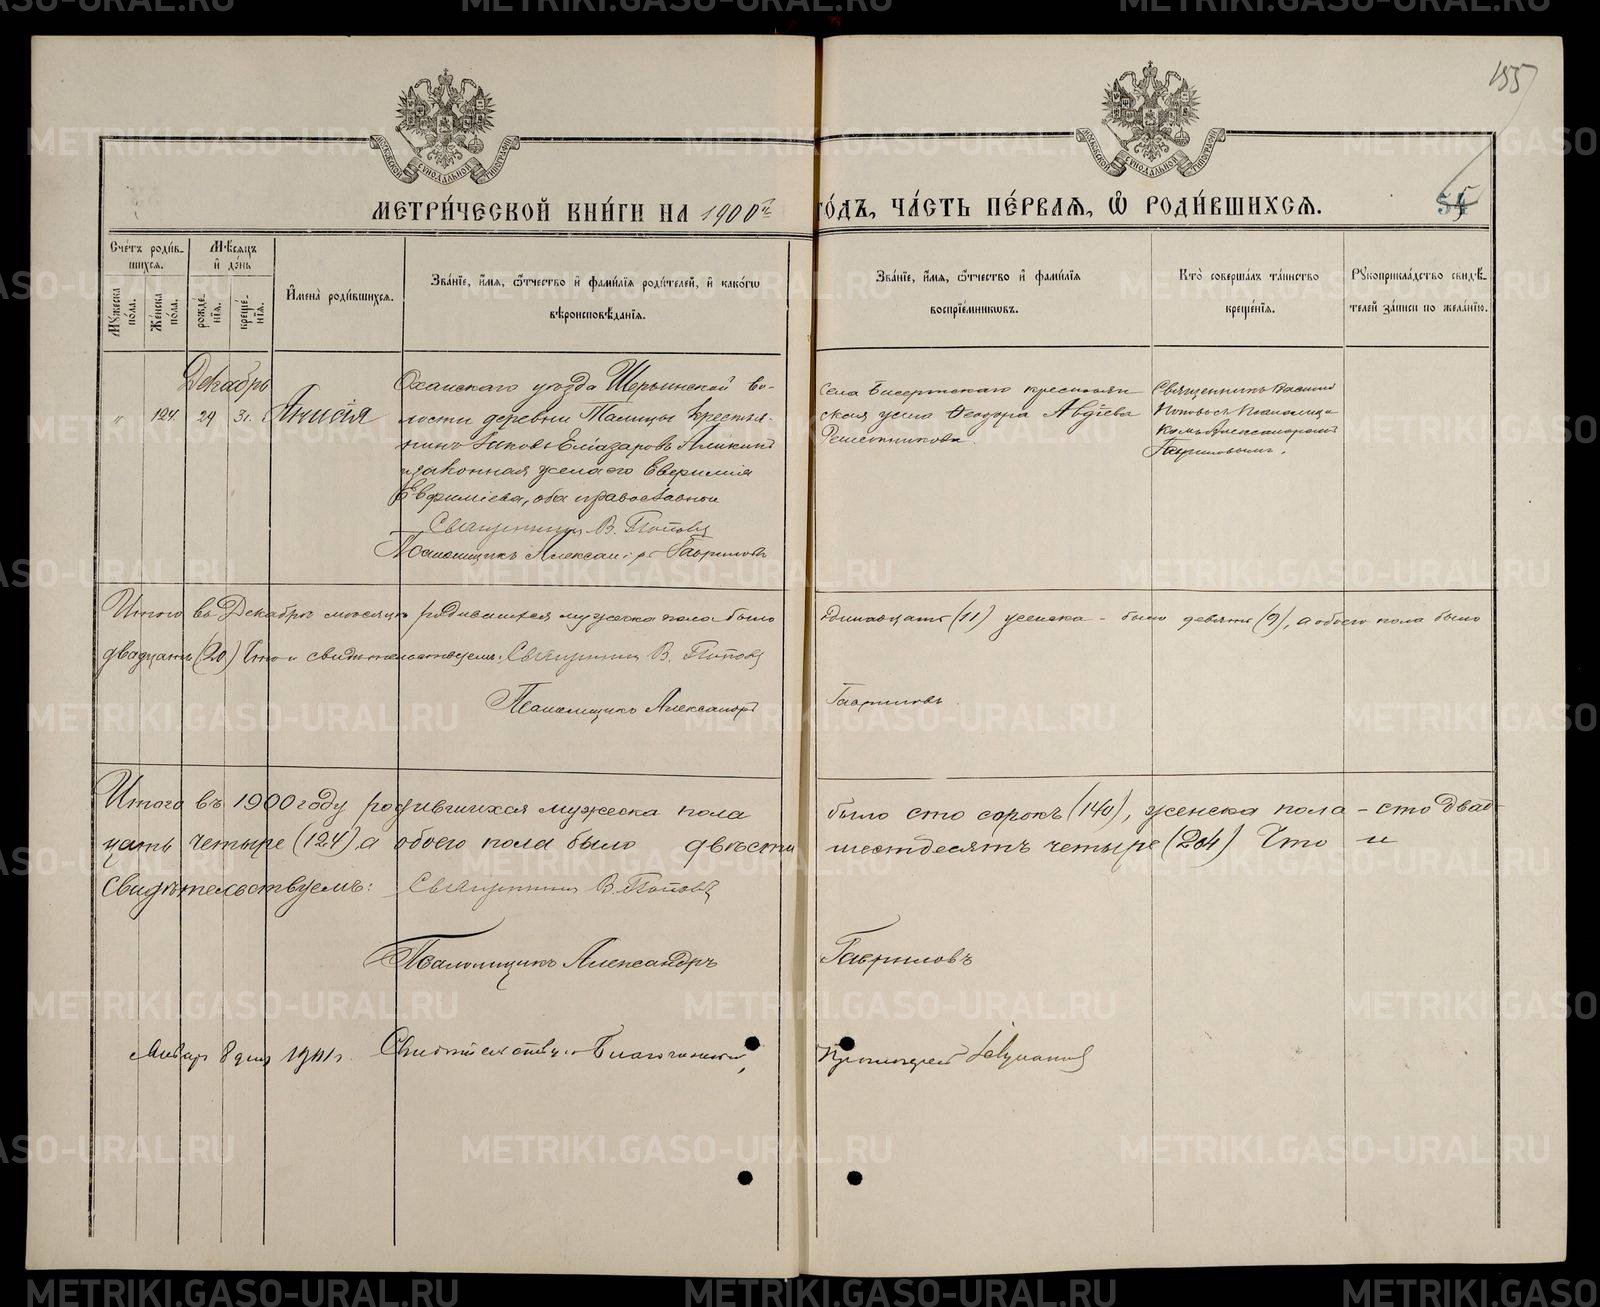 155
МОСКОВСКОЙ СѴНОДАЛЬНОЙ ТИПОГРАФІИ
МОСКОВСКОЙ СѴНОДАЛЬНОЙ ТИПОГРАФІИ
МЕТРИ́ЧЕСКОЙ КНИ́ГИ НА 1900й ГО́ДЪ, ЧА́СТЬ ПЕ́РВАЯ, Ѡ РОДИ́ВШИХСЯ.
54
Сче́тъ роди́в-
шихся.
Му́жеска по́ла.
Же́нска по́ла.
Мѣ́сяцъ
и҆ де́нь
рожде́-
нїя.
креще́-
нїя.
И҆мена̀ роди́вшихся.
Зва́нїе, и҆́мя, ѻ҆́тчество и҆ фами́лїя роди́телей, и҆ како́гѡ
вѣроисповѣ́данїя.
Зва́нїе, и҆́мя, ѻ҆́тчество и҆ фами́лїя
воспрїе́мникѡвъ.
Кто̀ соверша́лъ та́инство
креще́нїя.
Рꙋкоприкла́дство свидѣ́-
телей за́писи по жела́нїю.
Декабрь
" 124 29 31. Анисія
Оханскаго уѣзда Шерьинской во-
лости деревни Талицы крестья-
нинъ Іаковъ Елеазаровъ Аликинъ
и законная жена его Евфимія
Евфиміева, оба православные
Священникъ В. Поповъ
Псаломщикъ Александръ Гавриловъ
Села Бисертскаго крестьян-
ская жена Ѳеодора Авдіева
Решетникова.
Священникъ Василій
Поповъ съ Псаломщи-
комъ Александромъ
Гавриловымъ.
Итого въ Декабрѣ мѣсяцѣ родившихся мужеска пола было одинадцать (11) женска - было девять (9), а обоего пола было
двадцать (20) Что и свидѣтельствуемъ: Священникъ В. Поповъ
Псаломщикъ Александръ Гавриловъ.
Итого въ 1900 году родившихся мужеска пола было сто сорокъ (140), женска пола – сто двад-
цать четыре (124) а обоего пола было двѣсти шестьдесятъ четыре (264) Что и
свидѣтельствуемъ: Священникъ В. Поповъ
Псаломщикъ Александръ Гавриловъ
Январь 8 дня 1901 г. Свидѣтельств. Благочинный, Протоіерей
METRIKI.GASO-URAL.RU